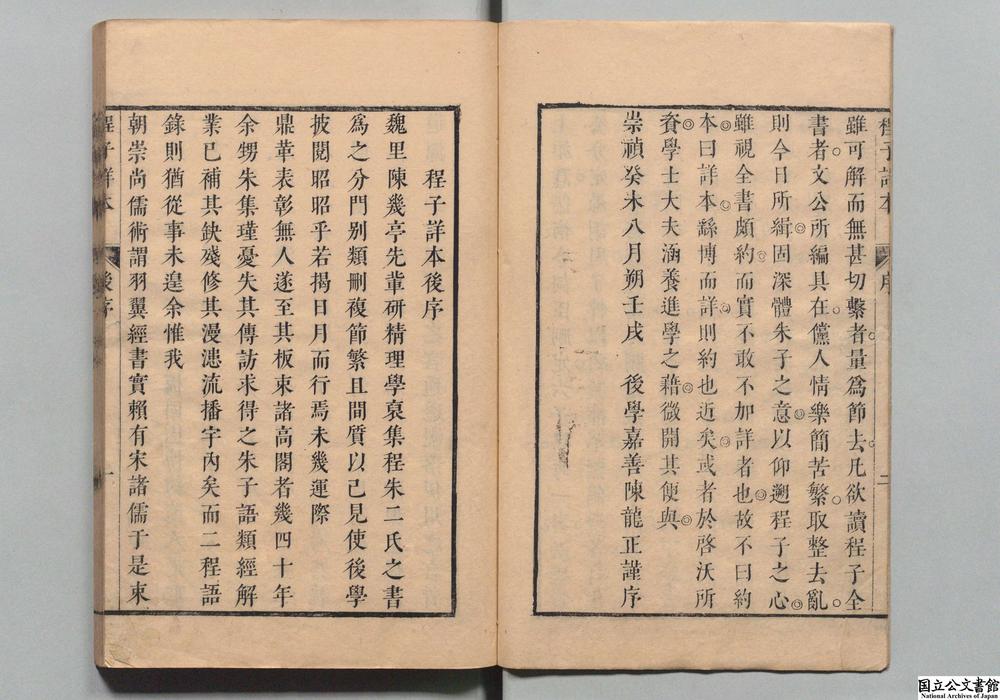 程子詳本 序 二
雖可解而無甚切繫者量爲節去凡欲讀程子全
書者文公所編具在儻人情樂簡苦繁取整去亂
則今日所緝固深體朱子之意以仰遡程子之心
雖視全書頗約而實不敢不加詳者也故不曰約
本曰詳本繇博而詳則約也近矣或者於啓沃所
資學士大夫涵養進學之藉微開其便與
崇禎癸未八月朔壬戌 後學嘉善陳龍正謹序
程子詳本後序
魏里陳幾亭先軰研精理學裒集程朱二氏之書
爲之分門别類刪複節繁且間質以己見使後學
披閱昭昭乎若揭日月而行焉未幾運際
鼎革表彰無人遂至其板束諸高閣者幾四十年
余甥朱集瑾憂失其傳訪求得之朱子語類經解
業已補其缺殘修其漫漶流播宇內矣而二程語
錄則猶從事未遑余惟我
朝崇尚儒術謂羽翼經書實賴有宋諸儒于是束
程子詳本 後序 一
国立公文書館
National Archives of Japan